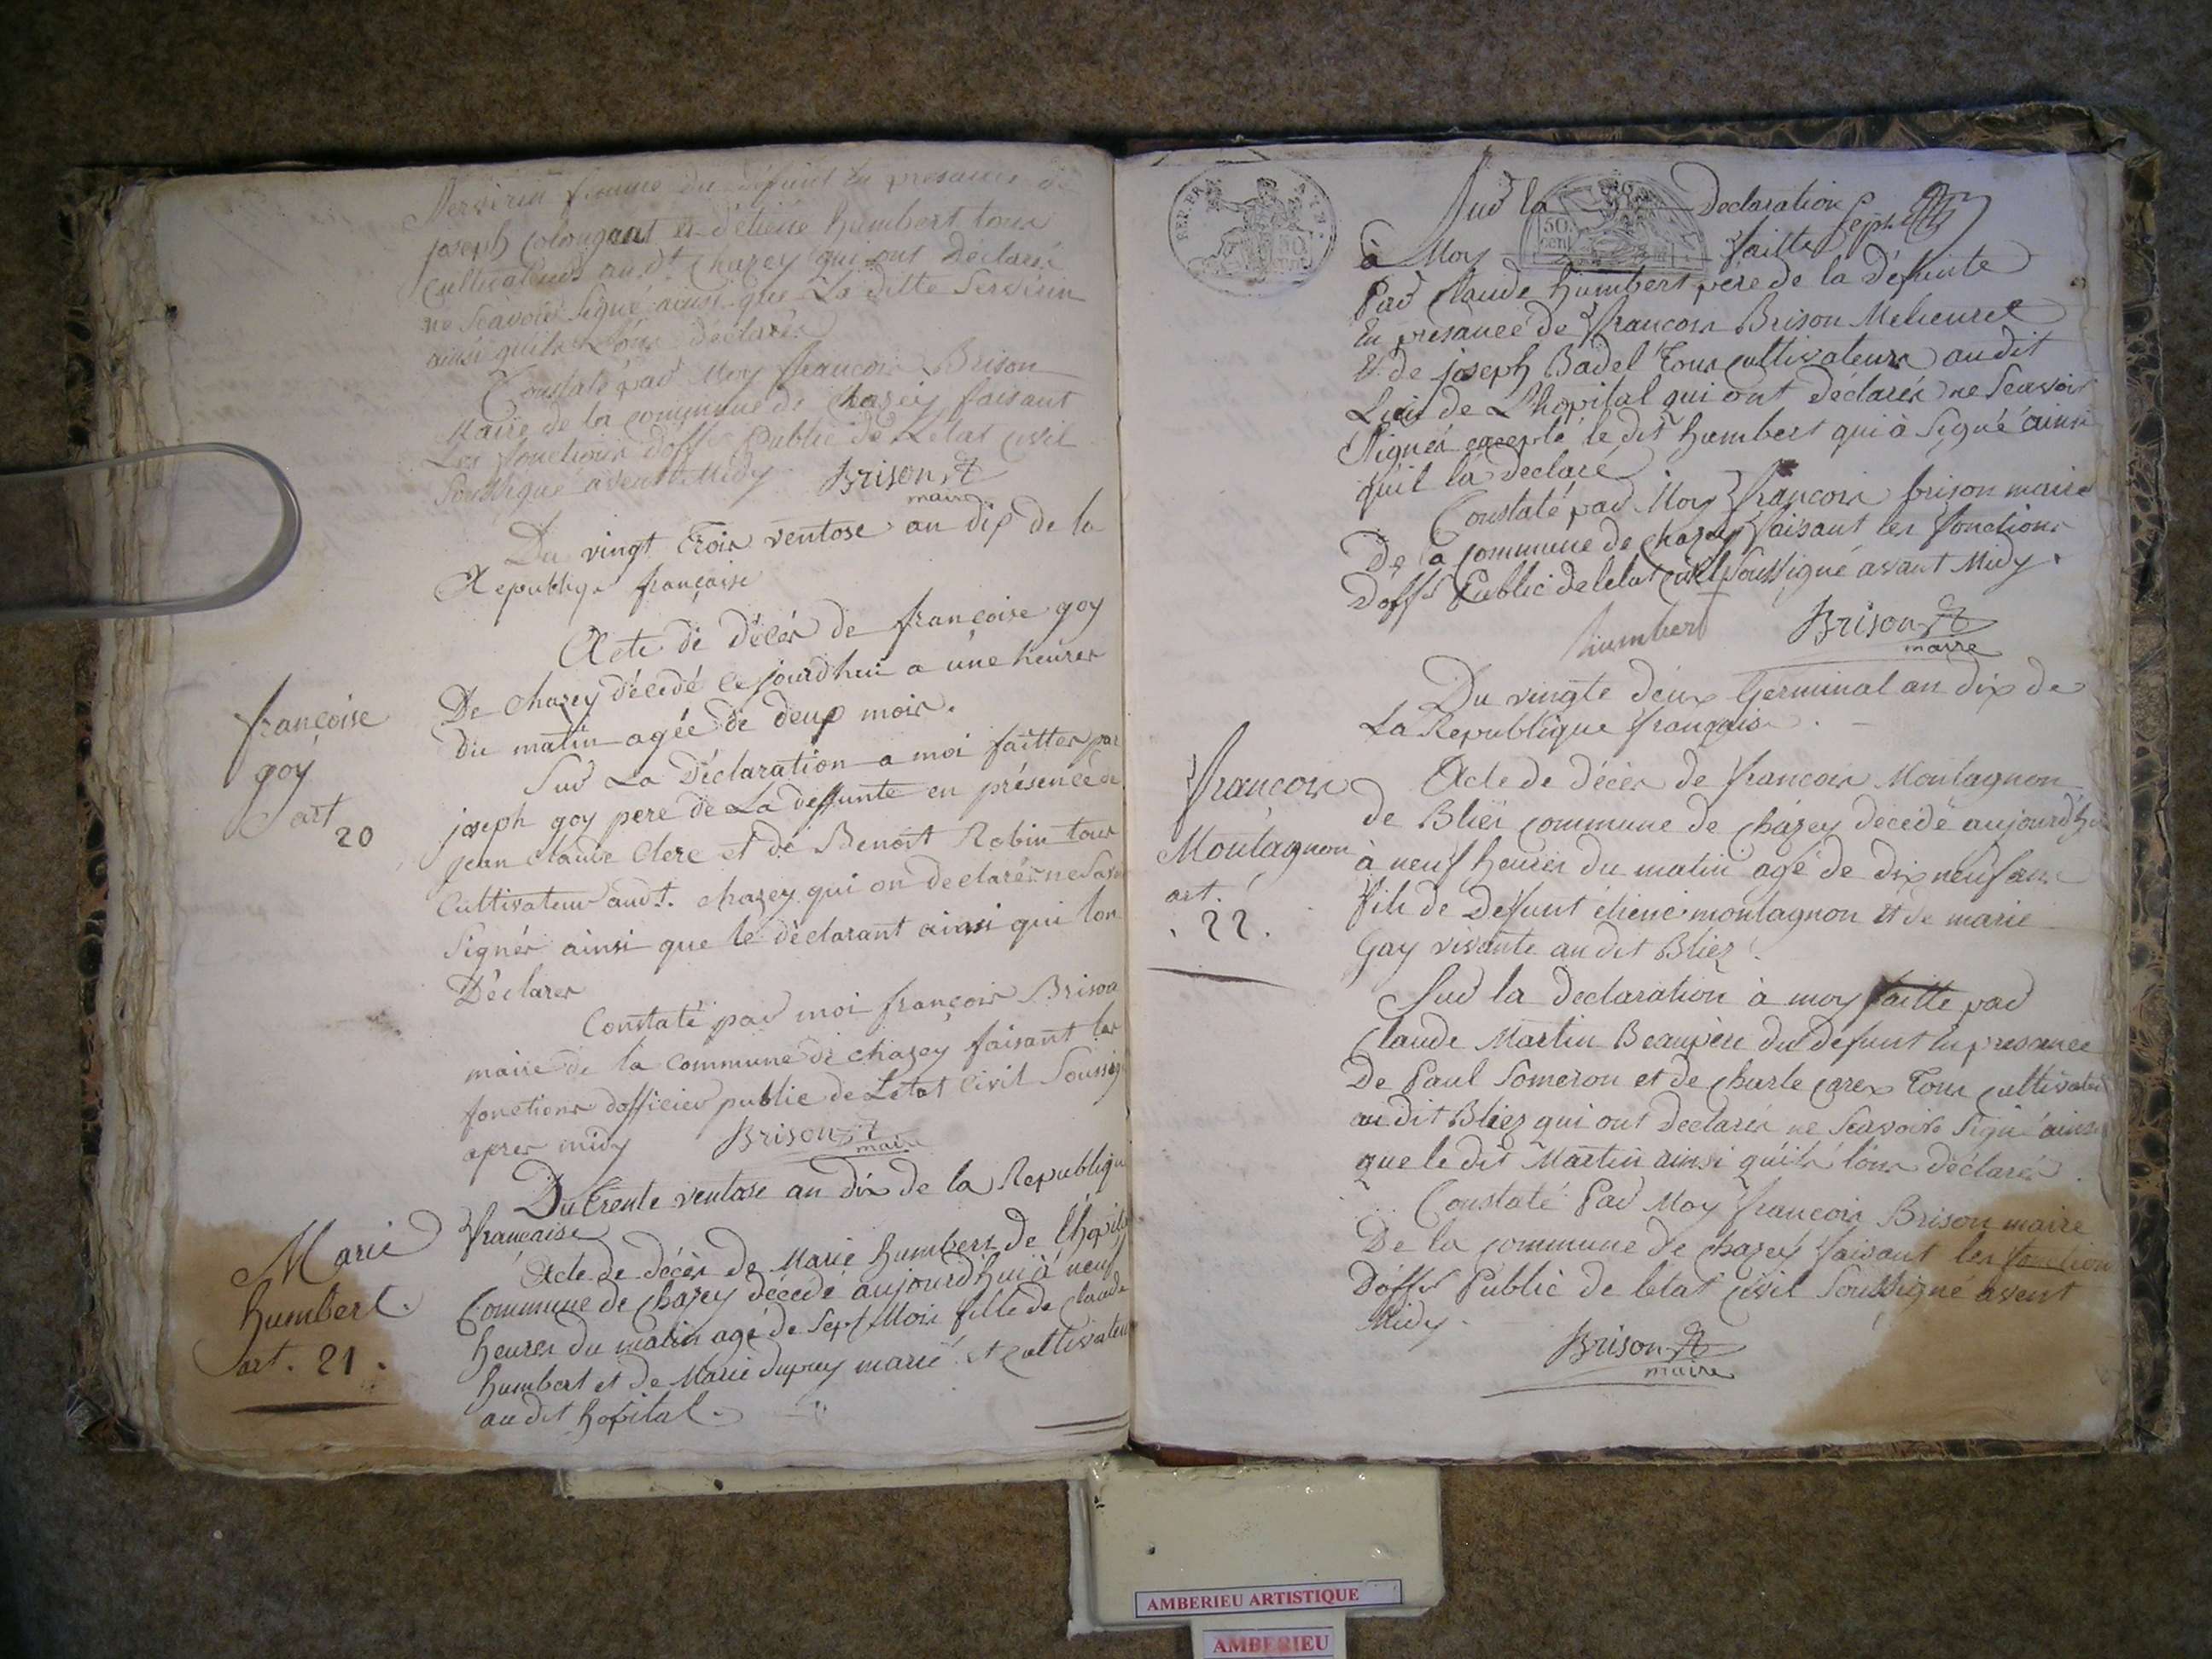 femme du défunt en presance de
joseph Colongeat et d'étiene humbert tous
Cultivateurs au dt. Chazey qui ont Déclaré
ne Scavoir Signé ainsi que La ditte Serverin
ainsi quils Lons déclarés
Constaté par Moy francois Brison
Maire de la commune de Chazey faisant
Les fonctions doffr Public de Létat Civil
Soussigné avent Midy Brison
maire
Du vingt trois ventose an dix de la
Republiqe française
françoise
goy
art
20
Acte de décés de françoise goy
De chazey décedé ce jourdhui a une heures
du matin agée de deux mois.
Sur La Déclaration a moi faittes par
joseph goy pere de La deffunte en présence de
jean claude Clerc et de Benoit Robin tous
Cultivateur aud.t. chazey qui on declarés ne Sav
Signér ainsi que le déclarant ainsi qui lon
Déclarer
Constaté par moi françois Brison
maire de la commune de chazey faisant les
fonctions dofficier public de Létat Civil Soussig
apres midy Brison
maire
Du trente ventose an dix de la Republiqu
francaise
Marie
humbert.
art. 21.
Acte de décès de Marie humbert de l'hopital
Commune de chazey décédé aujourdhui à neuf
heures du matin agé de Sept Mois fille de claude
humbert et de Marie dupuy marié et cultivateur
au dit hopital.
FR
50
cen
Sur la Declaration
à Moy faitte
Par Claude humbert pere de la défunte
En presance de francois Brison Melieuret
& de joseph Badel Tous cultivateurs audit
Lieu de L'hopital qui ont déclarés ne Scavoir
Signér excepté le dit humbert qui à Signé ainsi
qu'il la declaré
Constaté par Moy francois brison maire
De la Commune de chazey faisant les fonctions
Doffr Public de letat civil Soussigné avant Midy.
humbert Brison
maire
Du vingte deux Germinal an dix de
La Republique française.
francois
Montagnon
art.
. 22.
Acte de décès de francois Montagnon
de Bliés commune de chazey décédé aujourd'hu
à neuf heures du matin agé de dix neuf ans
fils de Defunt étiene montagnon et de marie
Gay vivante au dit Bliez.
Sur la Declaration à moy faitte par
Claude Martin Beaupere du Defunt en presance
De Paul Someron et de charle carex Tous cultivateu
au dit Bliez qui ont declarés ne Scavoir Signé ainsi
que le dit Martin ainsi qu'ils lons déclarés.
Constaté Par Moy francois Brison maire
De la Commune de chazey faisant les fonction
Doffr Public de letat civil Soussigné avent
Midy.
Brison
maire
AMBERIEU ARTISTIQUE
AMBERIEU